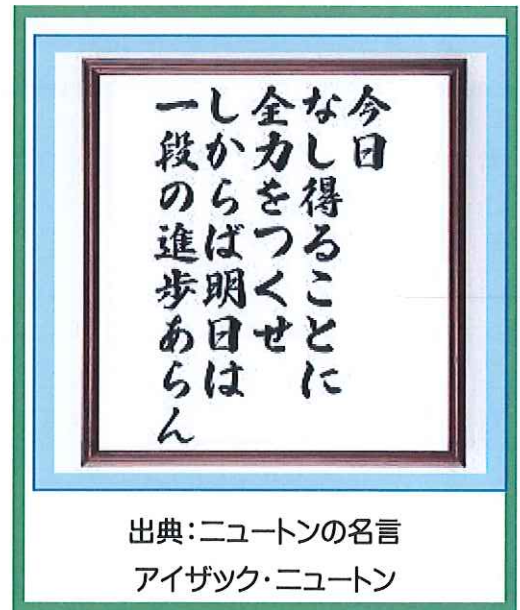 今日
なし得ることに
全力をつくせ
しからば明日は
一段の進歩あらん
出典：ニュートンの名言
アイザック・ニュートン